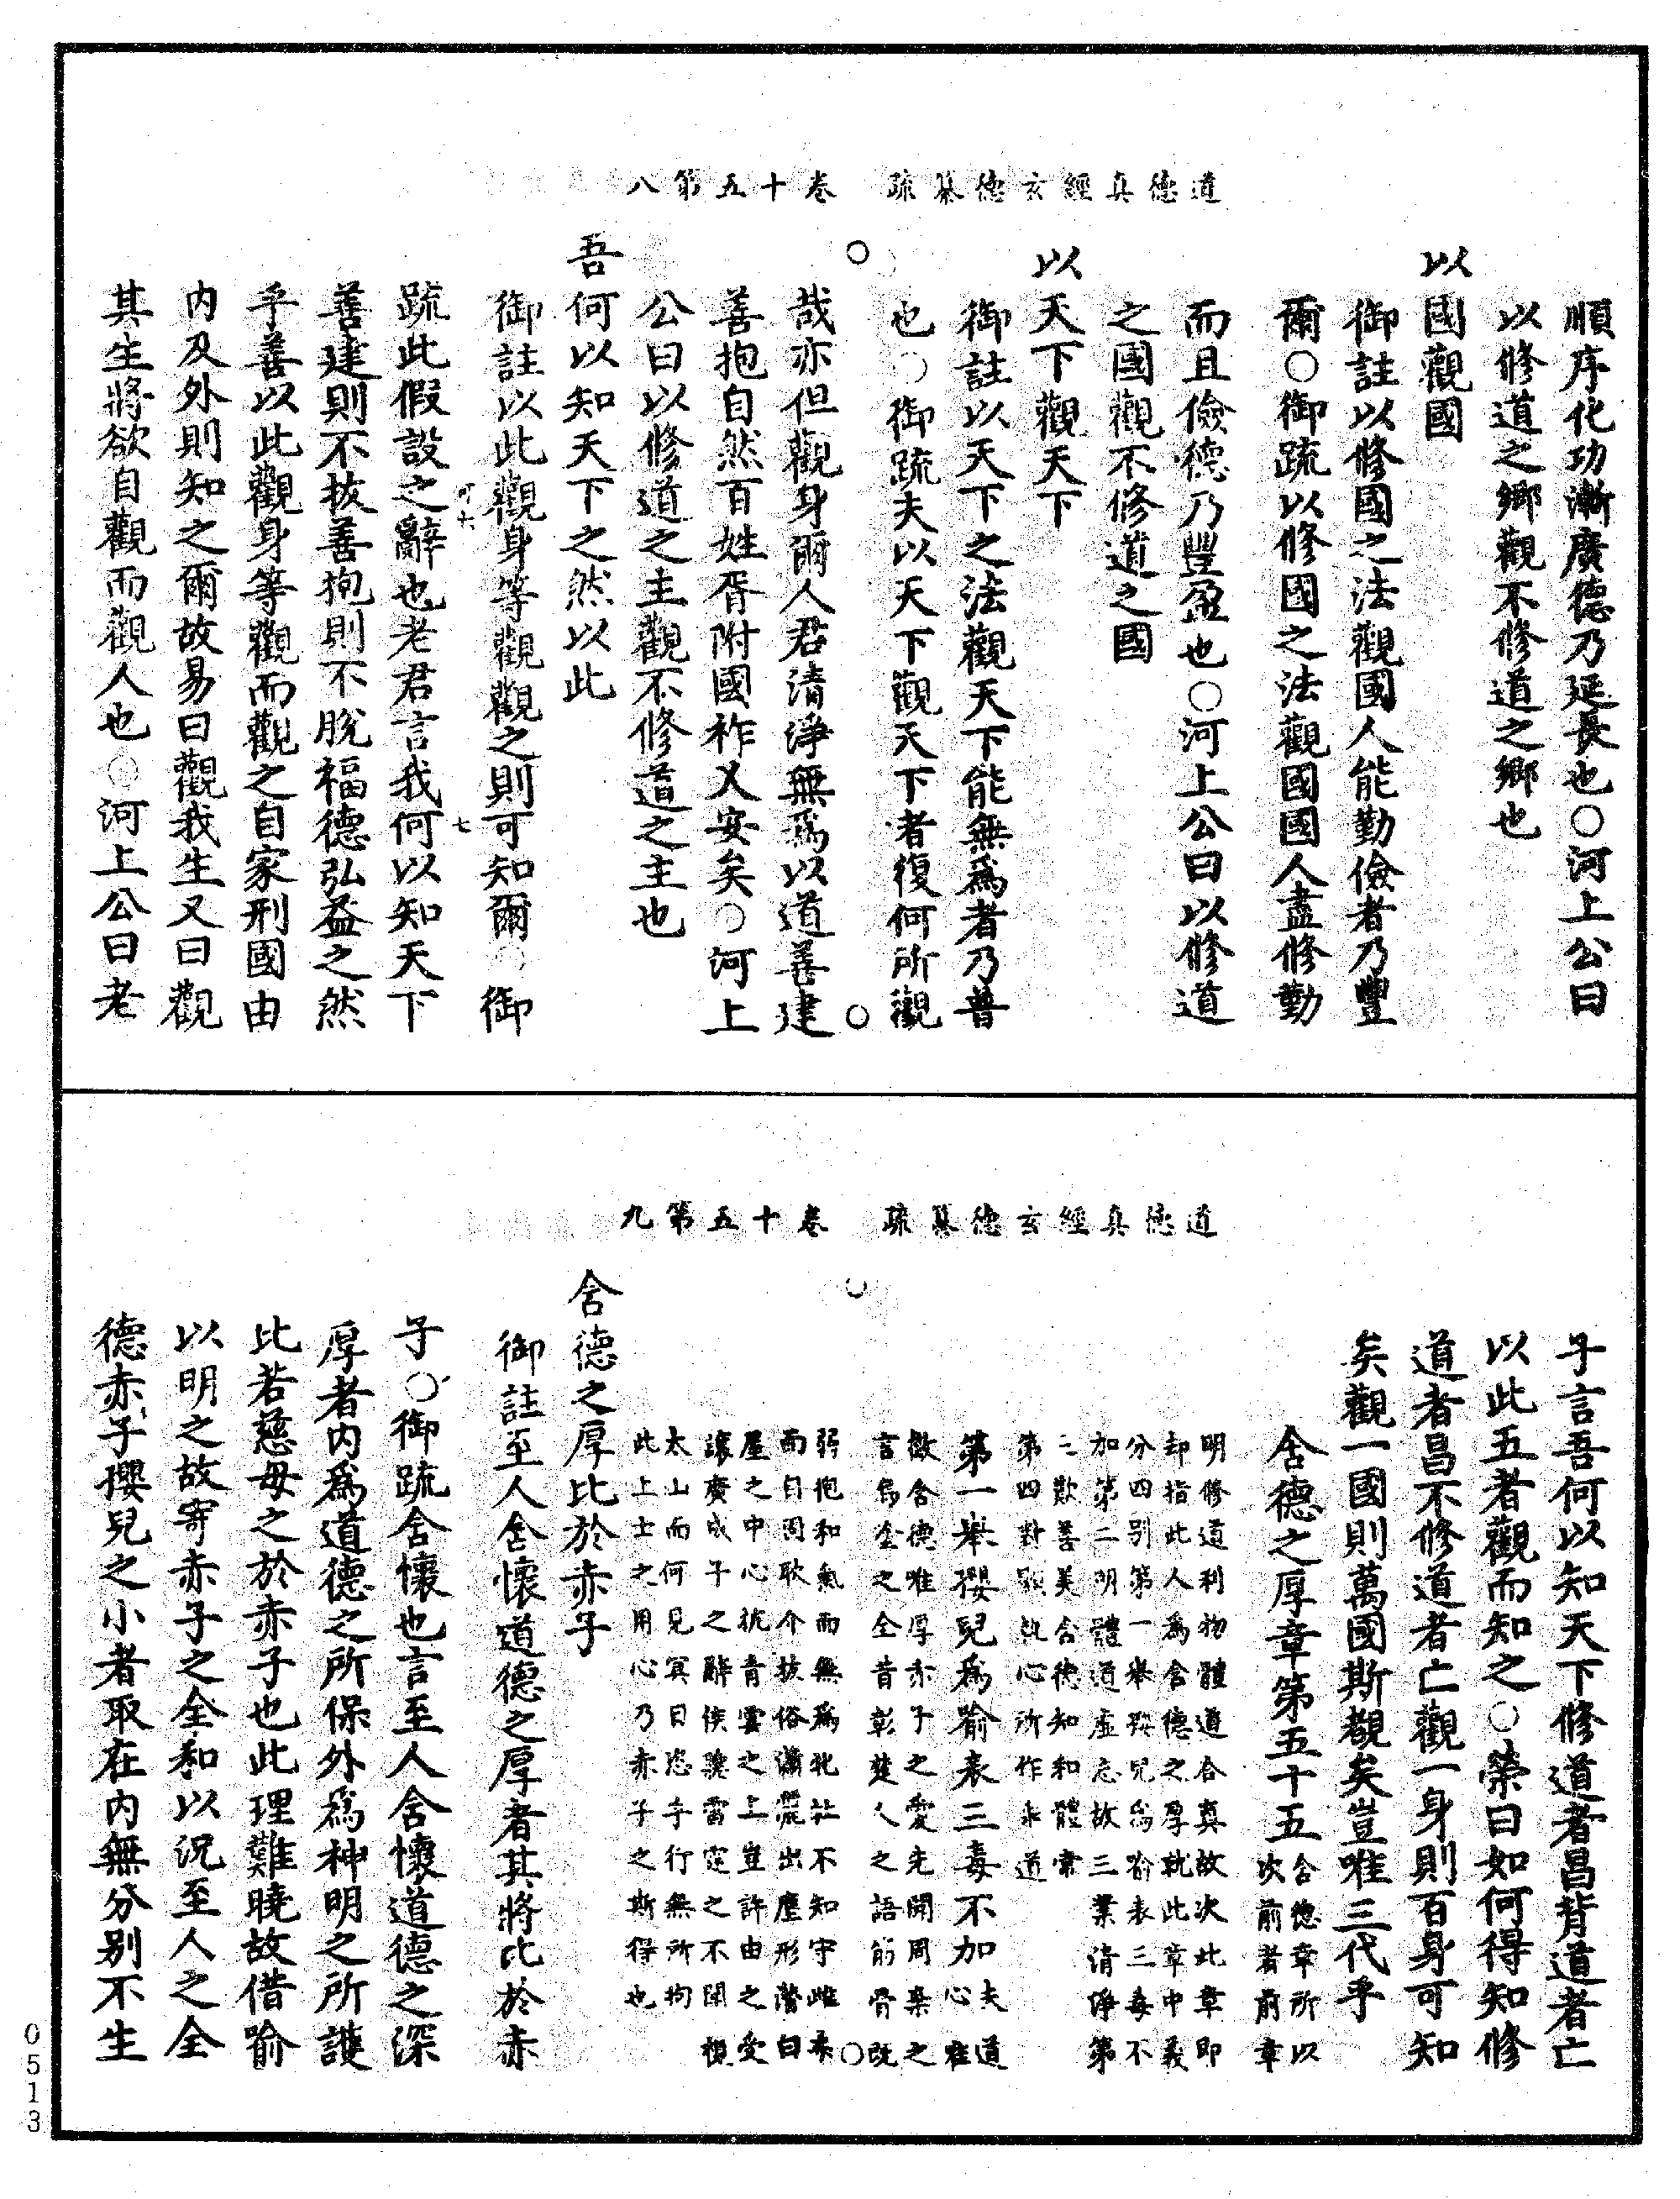 道德真經玄德纂疏　卷十五第八
順序化功漸廣德乃延長也○河上公曰
以修道之鄉觀不修道之鄉也
以國觀國
御註以修國之法觀國人能勤儉者乃豐
爾○御疏以修國之法觀國國人盡修勤
而且儉德乃豐盈也○河上公曰以修道
之國觀不修道之國
以天下觀天下
御註以天下之法觀天下能無爲者乃普
也○御疏夫以天下觀天下者復何所觀
哉亦但觀身爾人君清淨無爲以道善建
善抱自然百姓胥附國祚乂安矣○河上
公曰以修道之主觀不修道之主也
吾何以知天下之然以此
御註以此觀身等觀觀之則可知爾○御
疏此假設之辭也老君言我何以知天下
善建則不拔善抱則不脫福德弘益之然
乎善以此觀身等觀而觀之自家刑國由
內及外則知之爾故易曰觀我生又曰觀
其生將欲自觀而觀人也○河上公曰老
道德真經玄德纂疏　卷十五第九
子言吾何以知天下修道者昌背道者亡
以此五者觀而知之○榮曰如何得知修
道者昌不修道者亡觀一身則百身可知
矣觀一國則萬國斯覩矣豈唯三代乎
含德之厚章第五十五含德章所以
次前者前章
明修道利物體道合真故次此章即
却指此人爲含德之厚就此章中義
分四別第一舉孾兒爲喻表三毒不
加第二明體道虛忘故三業清淨第
三歎善美含德知和體常
第四對顯執心所作乖道
第一舉孾兒爲喻表三毒不加夫道
心唯
微含德唯厚赤子之愛先聞周棄之
言烏坌之全昔彰楚人之語筋骨旣
弱抱和氣而無爲牝牡不知守雌柔
而自固耿介拔俗瀟灑出塵形骸曰
屋之中心抗青雲之上豈許由之受
讓廣成子之辭侯疾雷霆之不聞視
太山而何見冥目恣乎行無所拘
此上士之用心乃赤子之斯得也
含德之厚比於赤子
御註至人含懷道德之厚者其將比於赤
子○御疏含懷也言至人含懷道德之深
厚者內爲道德之所保外爲神明之所護
比若慈母之於赤子也此理難曉故借喻
以明之故寄赤子之全和以況至人之全
德赤子孾兒之小者取在內無分別不生
0513